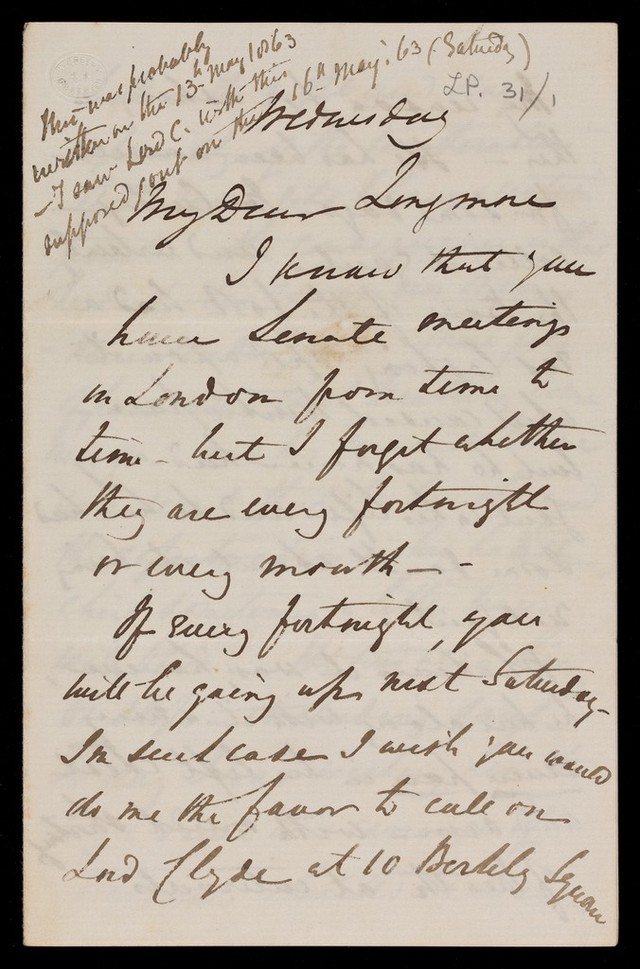 This was probably
written on the 13th May 1863
- I saw Lord C. with this
supposed gout on the 16th May: 63 (Saturday)
LP. 31/1
Wednesday
My Dear Longmore
I know that you
have Senate meetings
in London from time to
time - but I forget whether
they are every fortnight
or every month - -
If every fortnight, you
will be going up next Saturday -
In such case I wish you would
do me the favor to call on
Lord Clyde at 10 Berkley Square